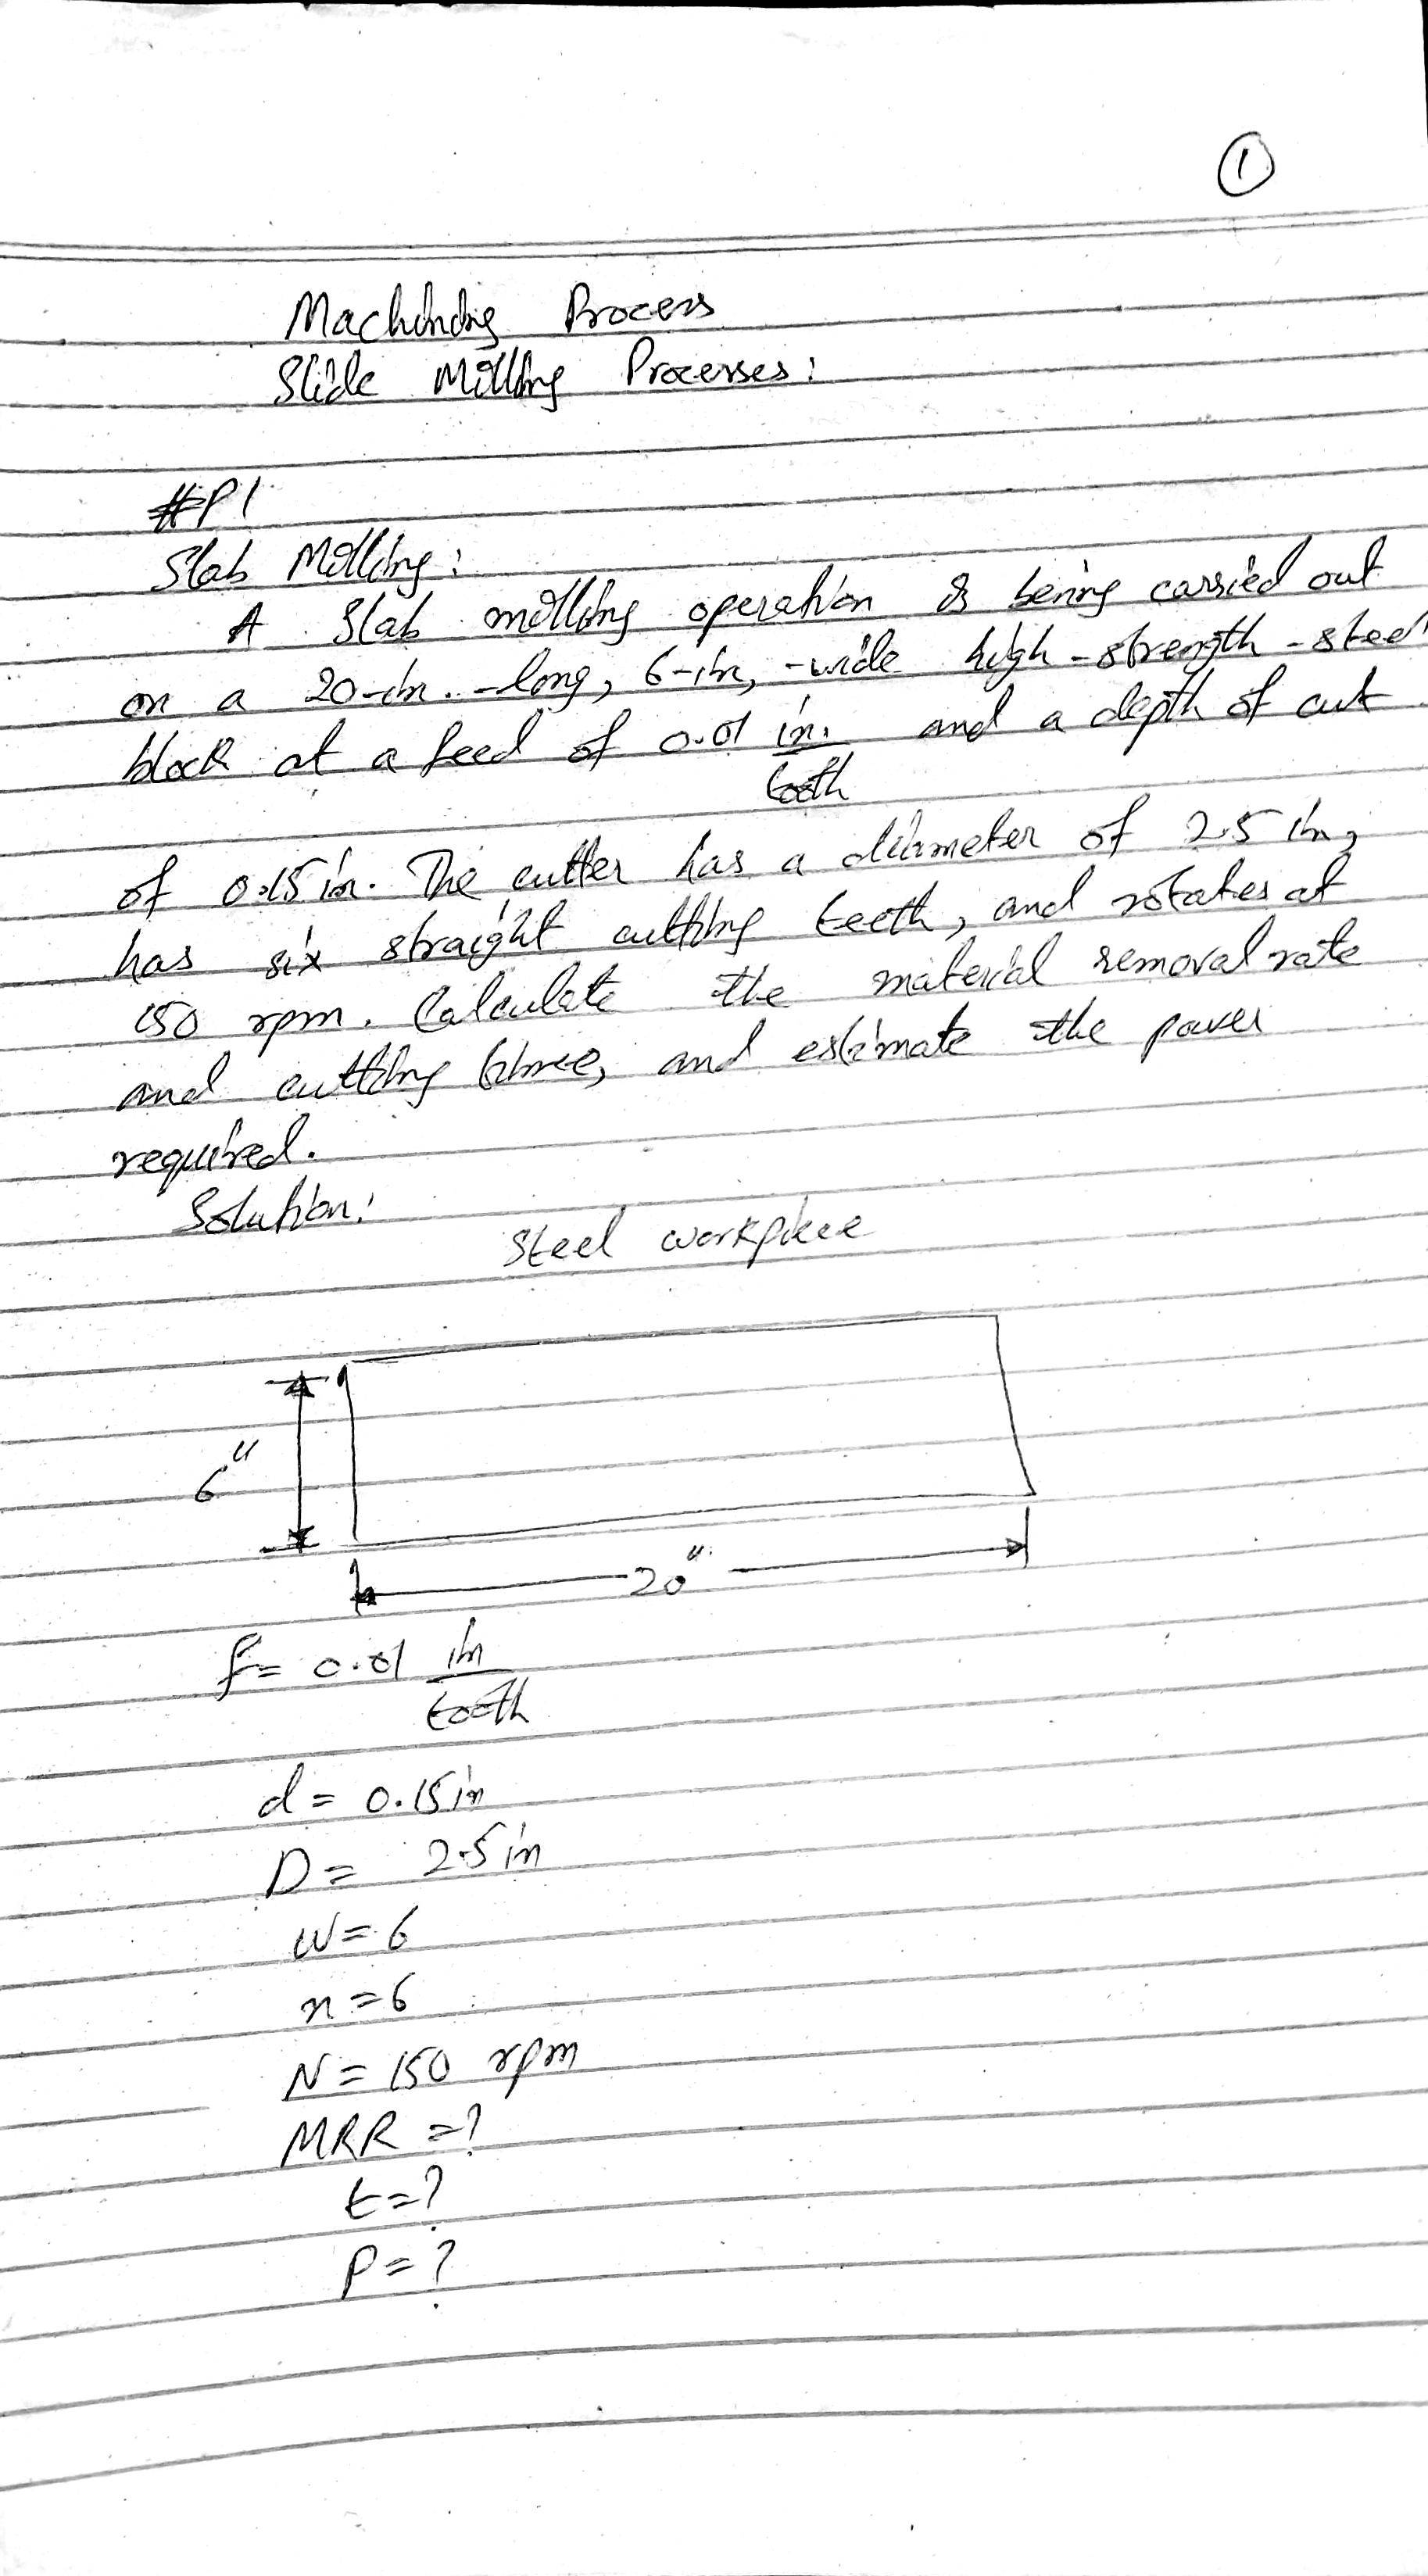 1
Machining Process
Slide Milling Processes:
#P1
Slab Milling:
A Slab milling operation is being carried out
on a 20-in.-long, 6-in,-wide high-strength-steel
block at a feed of 0.01 in./tooth and a depth of cut
of 0.15 in. The cutter has a diameter of 2.5 in,
has six straight cutting teeth, and rotates at
150 rpm. Calculate the material removal rate
and cutting time, and estimate the power
required.
Solution:
Steel workpiece
6"
20"
f = 0.01 in/tooth
d = 0.15 in
D = 2.5 in
W = 6
n = 6
N = 150 rpm
MRR = ?
t = ?
P = ?